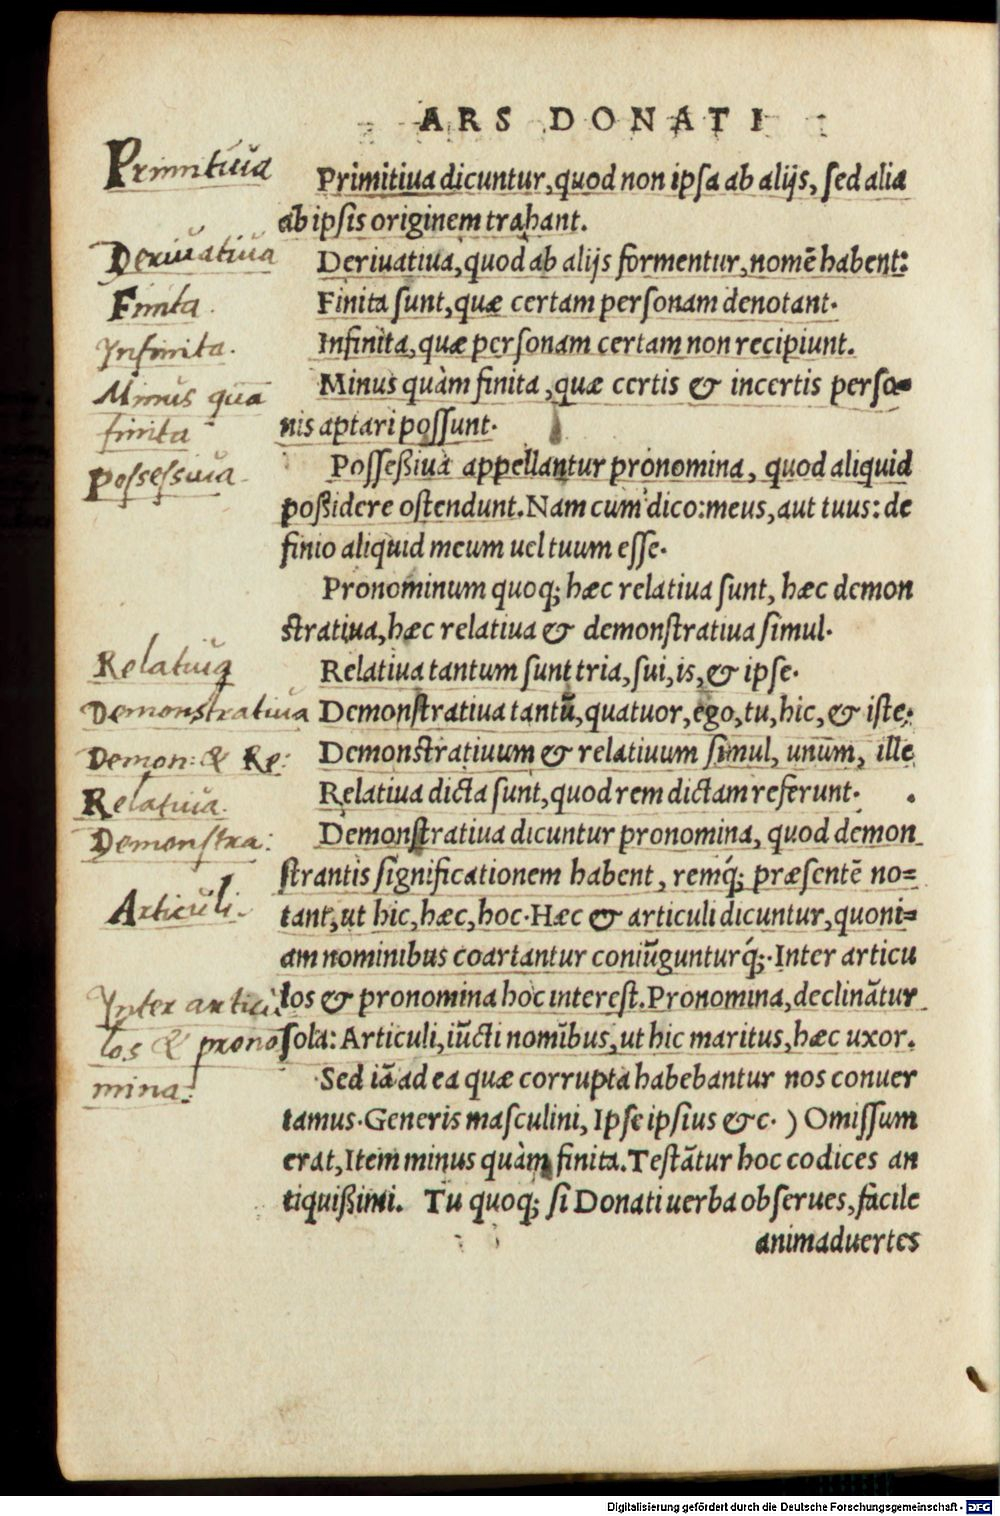 ARS DONATI
Primitiua
Primitiua dicuntur, quod non ipsa ab alijs, sed alia
ab ipsis originem trahant.
Deriuatiua
Deriuatiua, quod ab alijs formentur, nomē habent:
Finita.
Finita sunt, quæ certam personam denotant.
Infinita.
Infinita, quæ personam certam non recipiunt.
Minus quā
Minus quàm finita, quæ certis & incertis perso-
finita
nis aptari possunt.
possessiua.
Posseßiua appellantur pronomina, quod aliquid
poßidere ostendunt. Nam cum dico: meus, aut tuus: de
finio aliquid meum uel tuum esse.
Pronominum quoq; hæc relatiua sunt, hæc demon
stratiua, hæc relatiua & demonstratiua simul.
Relatiua
Relatiua tantum sunt tria, sui, is, & ipse.
Demonstratiua
Demonstratiua tantū, quatuor, ego, tu, hic, & iste.
Demon: & Re:
Demonstratiuum & relatiuum simul, unum, ille
Relatiua.
Relatiua dicta sunt, quod rem dictam referunt.
Demonstra:
Demonstratiua dicuntur pronomina, quod demon
strantis significationem habent, remq́; præsentē no=
Articuli.
tant, ut hic, hæc, hoc. Hæc & articuli dicuntur, quoni=
am nominibus coartantur coniūgunturq́;. Inter articu
Inter articu
los & pronomina hoc interest. Pronomina, declinātur
los & prono
sola: Articuli, iūcti nomībus, ut hic maritus, hæc uxor.
mina:
Sed iā ad ea quæ corrupta habebantur nos conuer
tamus. Generis masculini, Ipse ipsius &c. ) Omissum
erat, Item minus quàm finita. Testātur hoc codices an
tiquißimi. Tu quoq; si Donati uerba obserues, facile
animaduertes
Digitalisierung gefördert durch die Deutsche Forschungsgemeinschaft - DFG